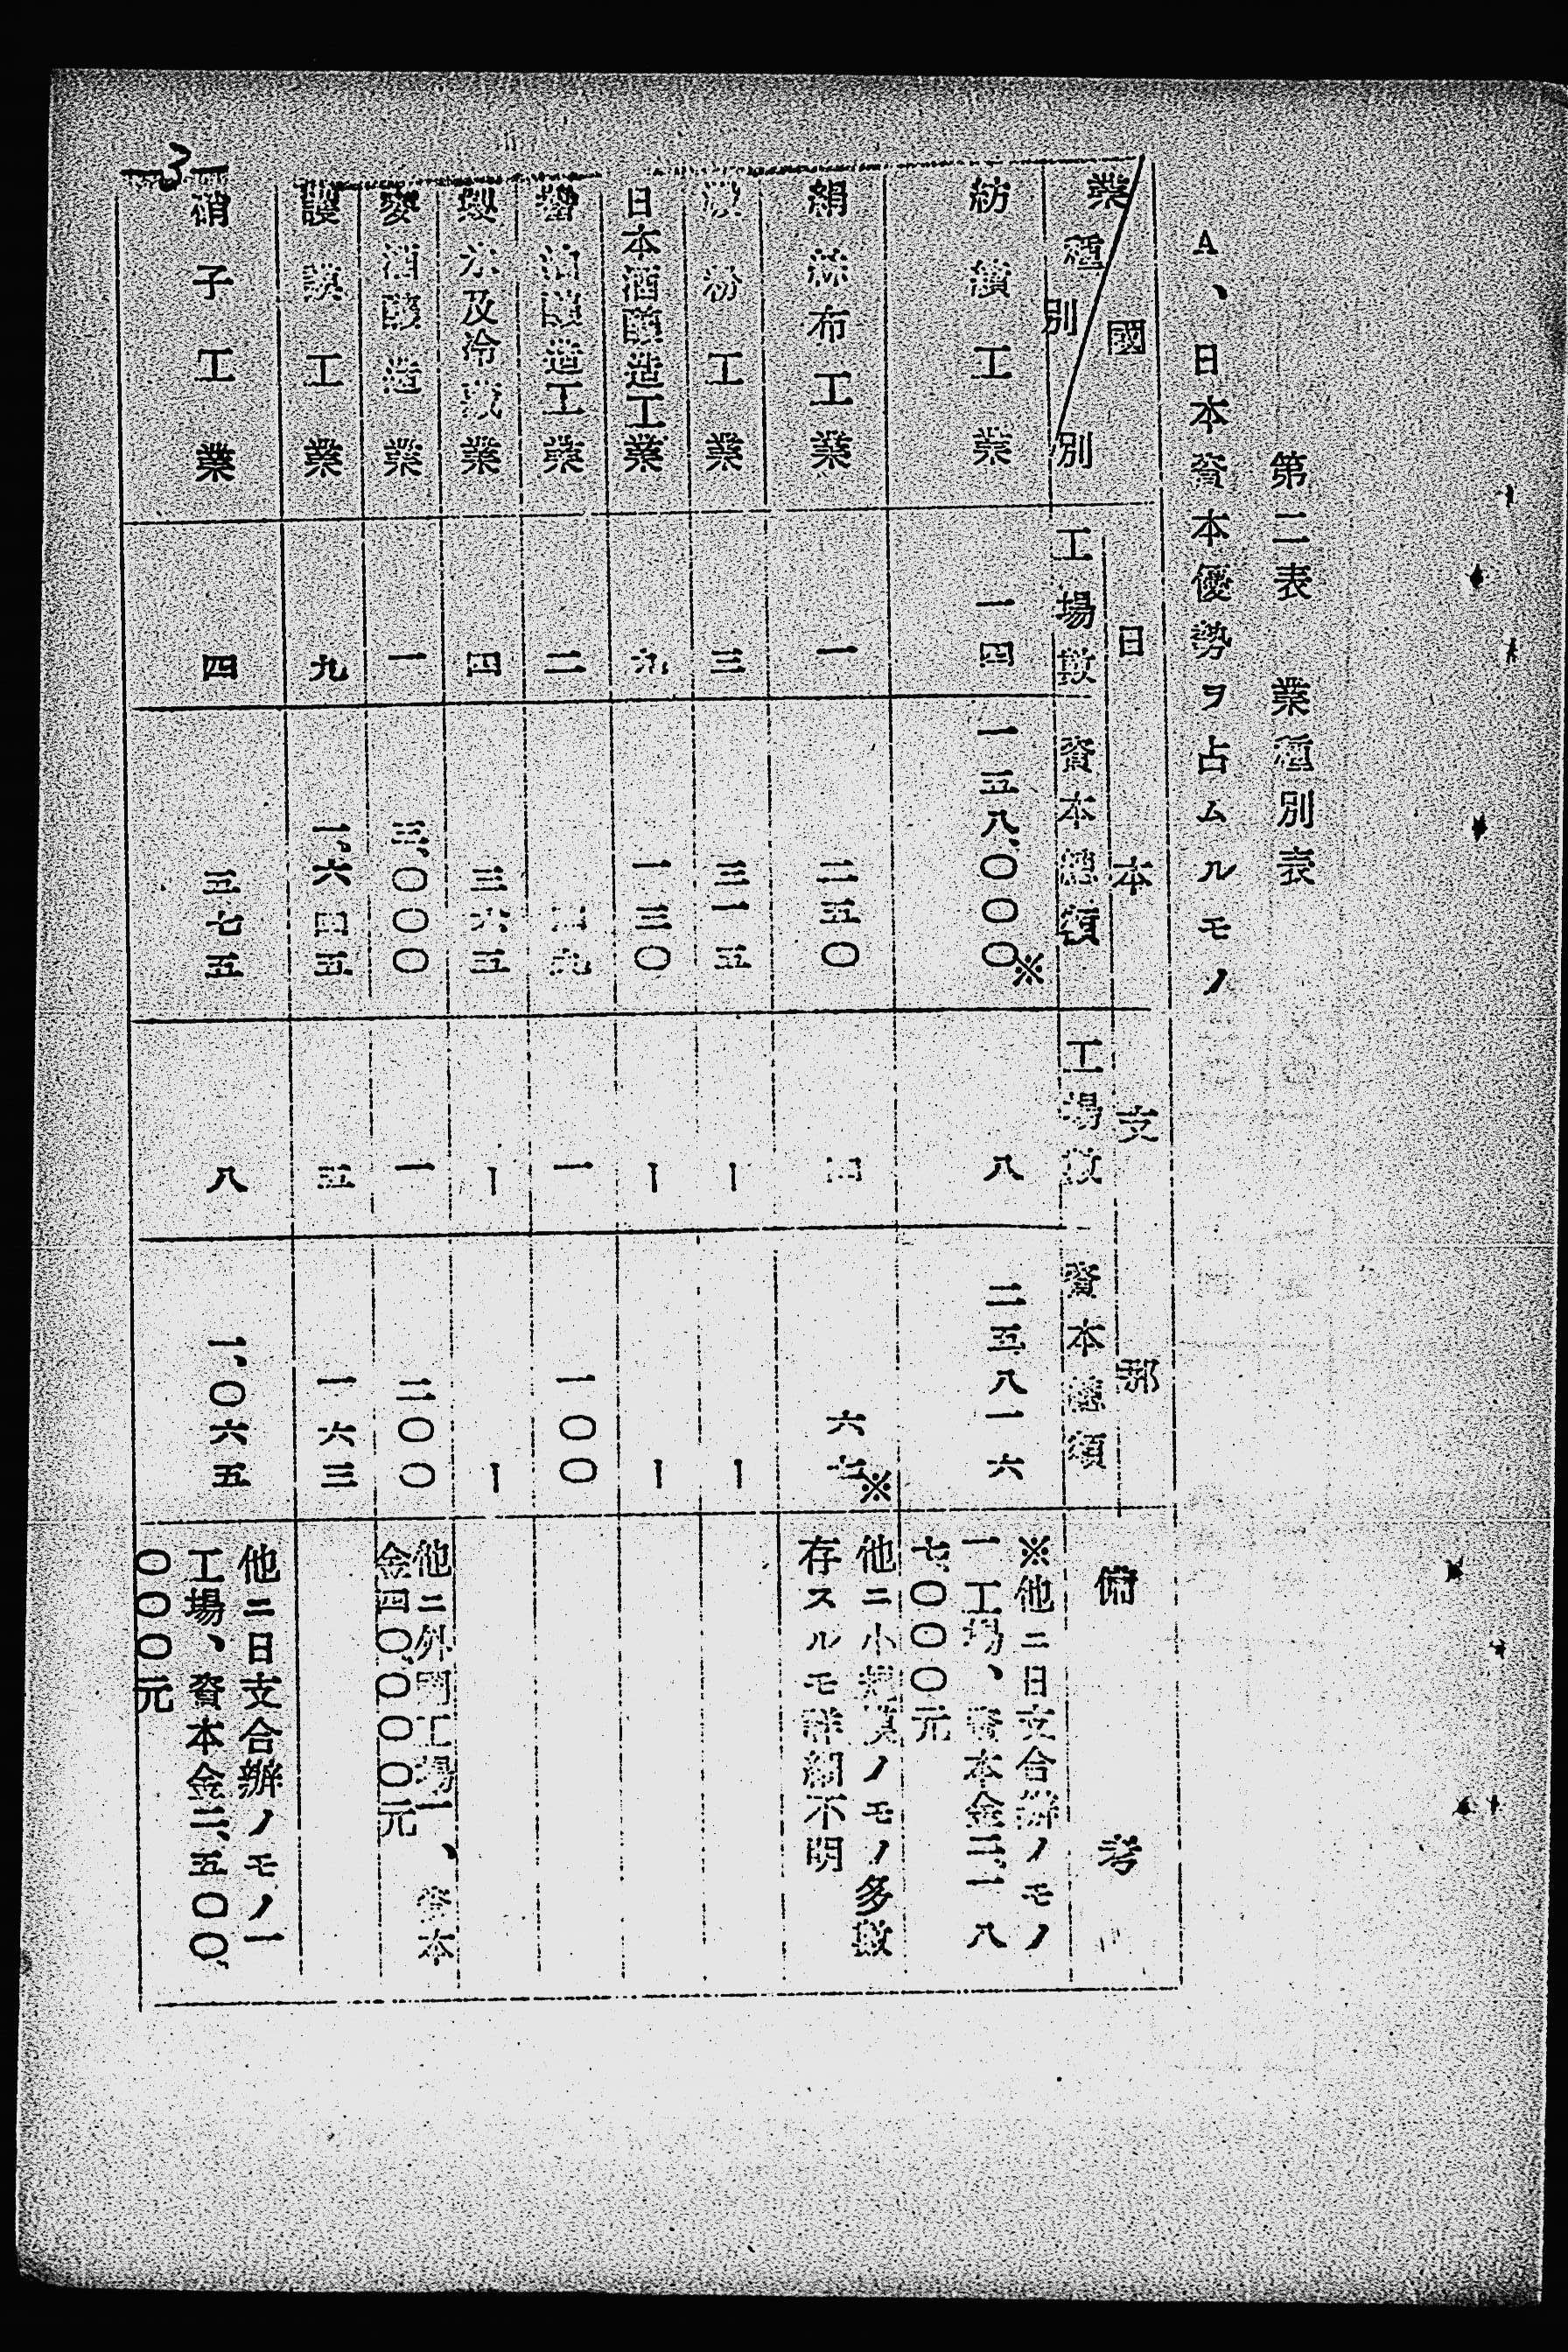 第二表　業種別表
A、日本資本優勢ヲ占ムルモノ
業種別　國別
日本　支那　備考
工場數　資本總額　工場數　資本總額
紡績工業　一四　一五八、〇〇〇※　八　二五八一六　※他ニ日支合辦ノモノ
一工場、資本金二、一八
七、〇〇〇元
絹綿布工業　一　二五〇　四　六七※　他ニ小規模ノモノ多數
存スルモ詳細不明
粉工業　三　三一五　ー　ー
日本酒釀造工業　九　一三〇　ー　ー
釀造工業　二　四九　一　一〇〇
製氷及冷藏業　四　三六五　ー　ー
麥酒釀造業　一　三、〇〇〇　一　二〇〇　他ニ外國工場一、資本
金四〇〇、〇〇〇元
護謨工業　九　一、六四五　五　一六三
硝子工業　四　三七五　八　一、〇六五　他ニ日支合辦ノモノ一
工場、資本金二、五〇〇、
〇〇〇元
—3—